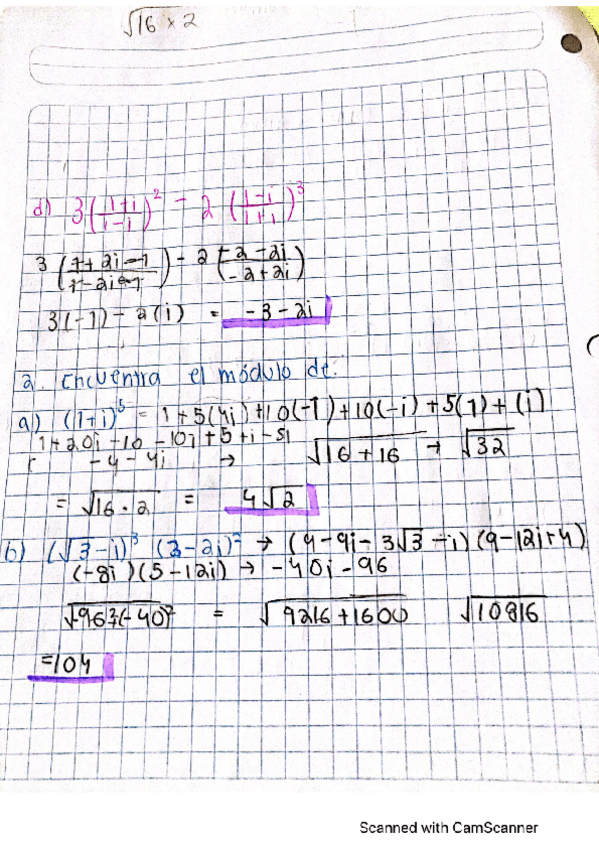 √16 × 2
d) 3(1+i/1-i)² - 2(1-i/1+i)³
3(1+2i-1/1-2i-1) - 2(-2-2i/-2+2i)
3(-1) - 2(i) = -3-2i
2. Encuentra el módulo de:
a) (1+i)⁵ = 1+5(4i)+10(-1)+10(-i)+5(1)+(i)
1+20i-10-10i+5+i-5i
-4-4i → √16+16 → √32
= √16·2 = 4√2
b) (√3-i)³ (3-2i)² → (9-9i-3√3-i)(9-12i+4)
(-8i)(5-12i) → -40i-96
√96²+(-40)² = √9216+1600 √10816
=104
Scanned with CamScanner